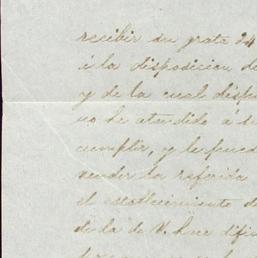 recibir su grata 24
á la disposicion de
y de la cual dispu
no he atendido á s
cumplir, y le pued
vender la referida
el establecimiento d
de la de V. hice